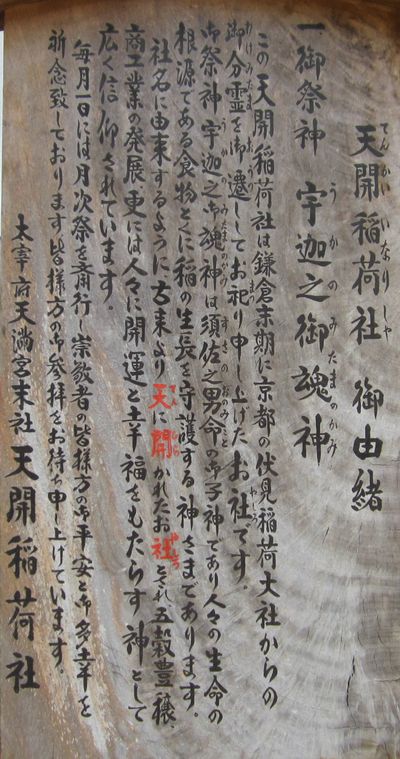 天開稲荷社 御由緒
一、御祭神 宇迦之御魂神
この天開稲荷社は鎌倉末期に京都の伏見稲荷大社からの
御分霊を御遷ししてお祀り申し上げたお社です。
御祭神宇迦之御魂神は須佐之男命の御子神であり人々の生命の
根源である食物とくに稲の生長を守護する神さまであります。
社名に由来するように古来より天に開かれたお社とされ、五穀豊穣、
商工業の発展、更には人々に開運と幸福をもたらす神として
広く信仰されています。
毎月一日には月次祭を斎行し崇敬者の皆様方の御平安と御多幸を
祈念致しております。皆様方の御参拝をお待ち申し上げています。
太宰府天満宮末社 天開稲荷社